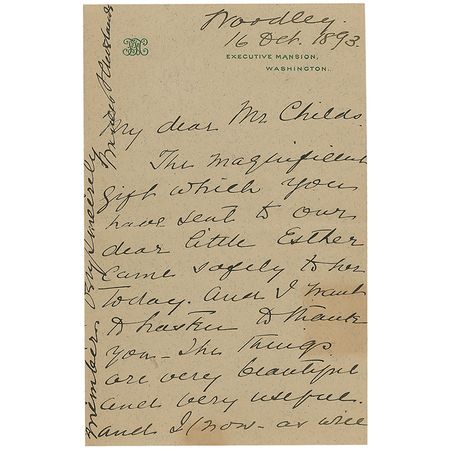 Woodley.
16 Oct. 1893.
EXECUTIVE MANSION,
WASHINGTON.
My dear Mr Childs
The magnificent
gift which you
have sent to our
dear little Esther
came safely to her
today. And I want
to hasten to thank
you - The things
are very beautiful
and very useful.
and I (now - as will
member. Very sincerely
Cleveland